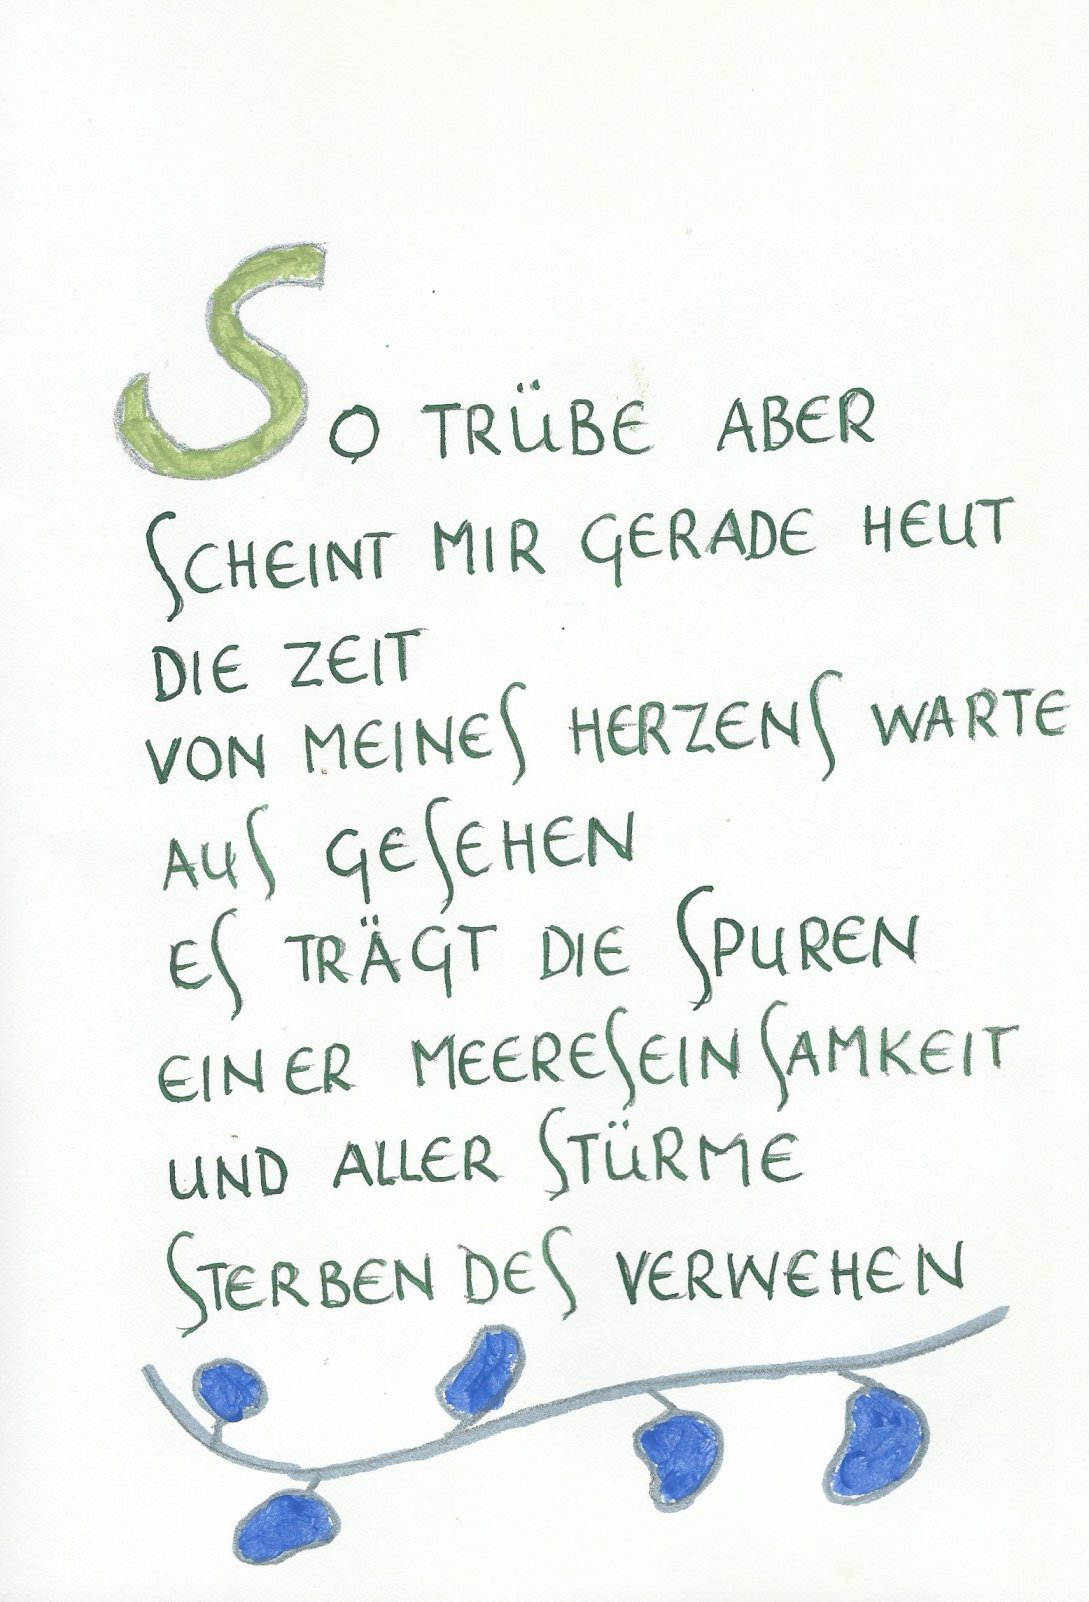 SO TRÜBE ABER
SCHEINT MIR GERADE HEUT
DIE ZEIT
VON MEINES HERZENS WARTE
AUS GESEHEN
ES TRÄGT DIE SPUREN
EINER MEERESEINSAMKEIT
UND ALLER STÜRME
STERBENDES VERWEHEN